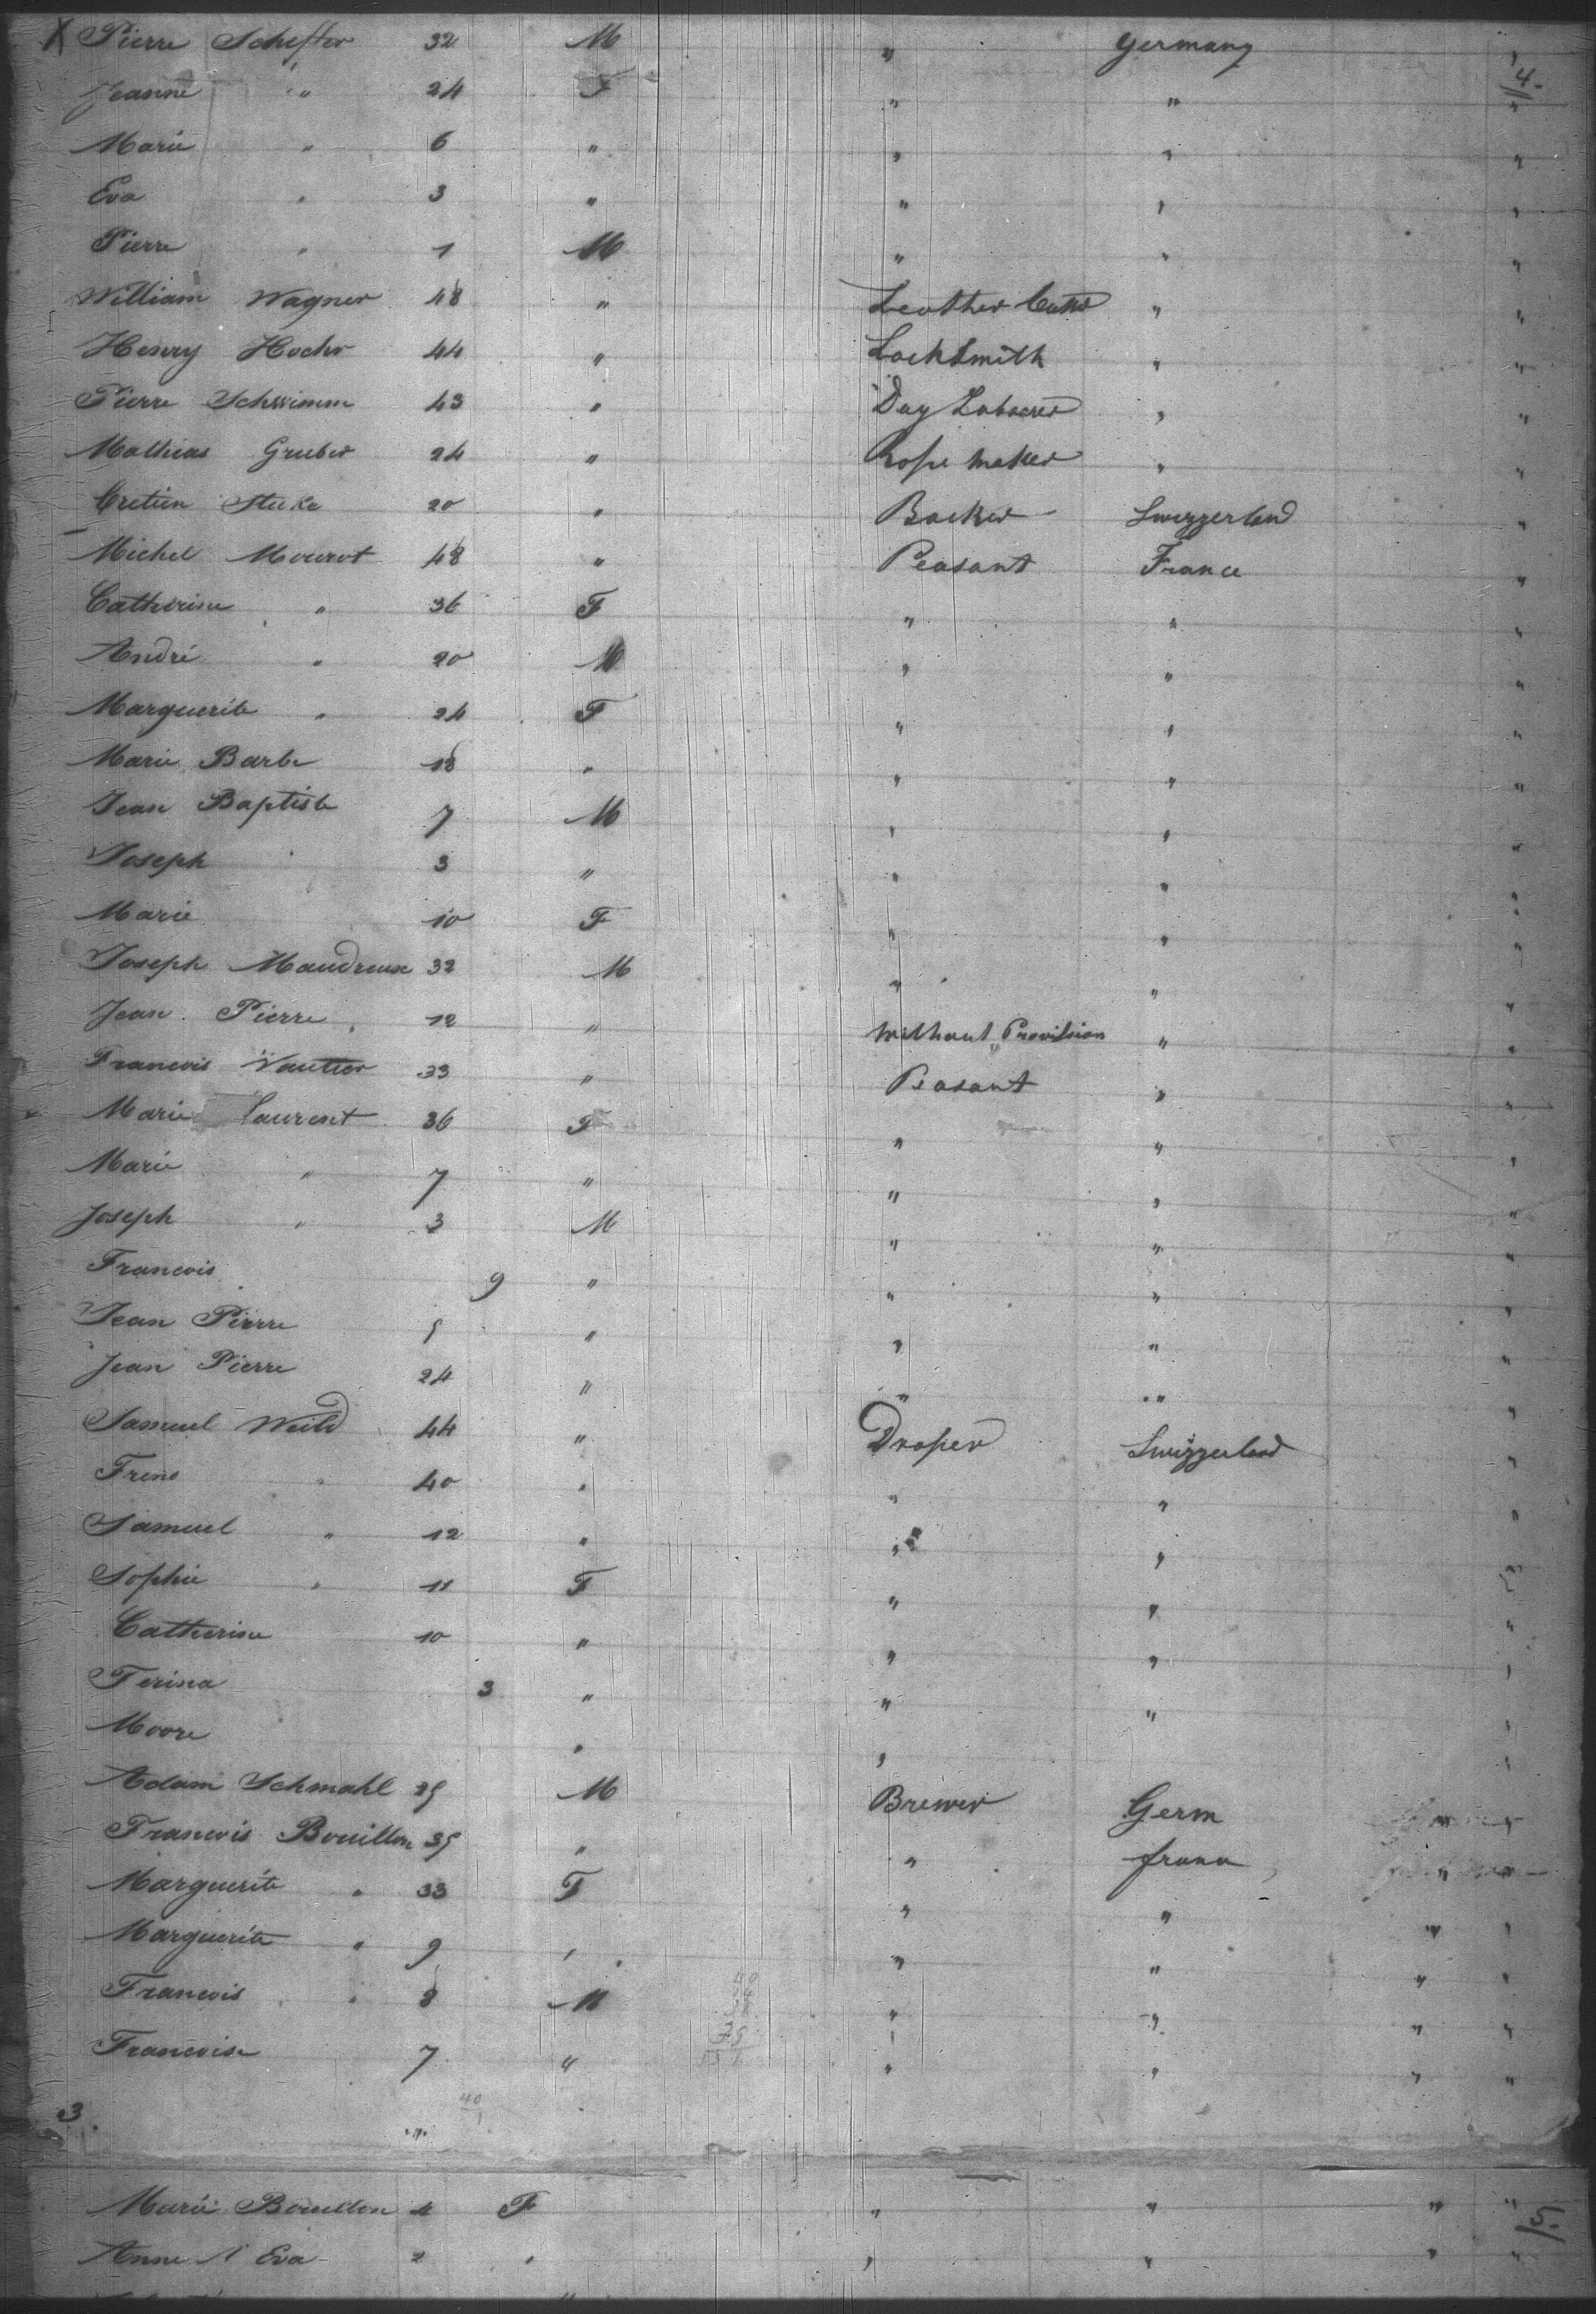 X Pierre Scheffer 32 M " Germany "
4.
Jeanne " 24 F " " "
Marie " 6 " " " "
Eva " 3 " " " "
Pierre " 1 M " " "
William Wagner 48 " Leather Cutter " "
Henry Hoehr 44 " Locksmith " "
Pierre Schwimm 43 " Day Labourer " "
Mathias Gruber 24 " Rope maker " "
Cretien Steike 20 " Backer Swizzerland "
Michel Mourot 48 " Peasant France "
Catherine " 36 F " " "
André " 20 M " " "
Marguerite " 24 F " " "
Marie Barbe 18 " " " "
Jean Baptiste 7 M " " "
Joseph 3 " " " "
Marie 10 F " " "
Joseph Maudreux 32 M " " "
Jean Pierre " 12 " Without Provision " "
Francois Vautier 33 " Peasant " "
Marie Laurent 36 F " " "
Marie " 7 " " " "
Joseph " 3 M " " "
Francois 9 " " " "
Jean Pierre 5 " " " "
Jean Pierre 24 " " " "
Samuel Weild 44 " Draper Swizzerland "
Frene " 40 " " " "
Samuel " 12 " " " "
Sophie " 11 F " " "
Catherine 10 " " " "
Ferina 3 " " " "
Moore " " " "
Adam Schmahl 25 M Brewer Germ " "
Francois Bouillon 35 " " franc " "
Marguerite " 33 F " " " "
Marguerite " 9 " " " " "
Francois " 8 M " " " "
Francoise 7 " " " " "
40
3
Marie Bouillon 4 F " " " "
5.
Anne " Eva 2 " " " " "